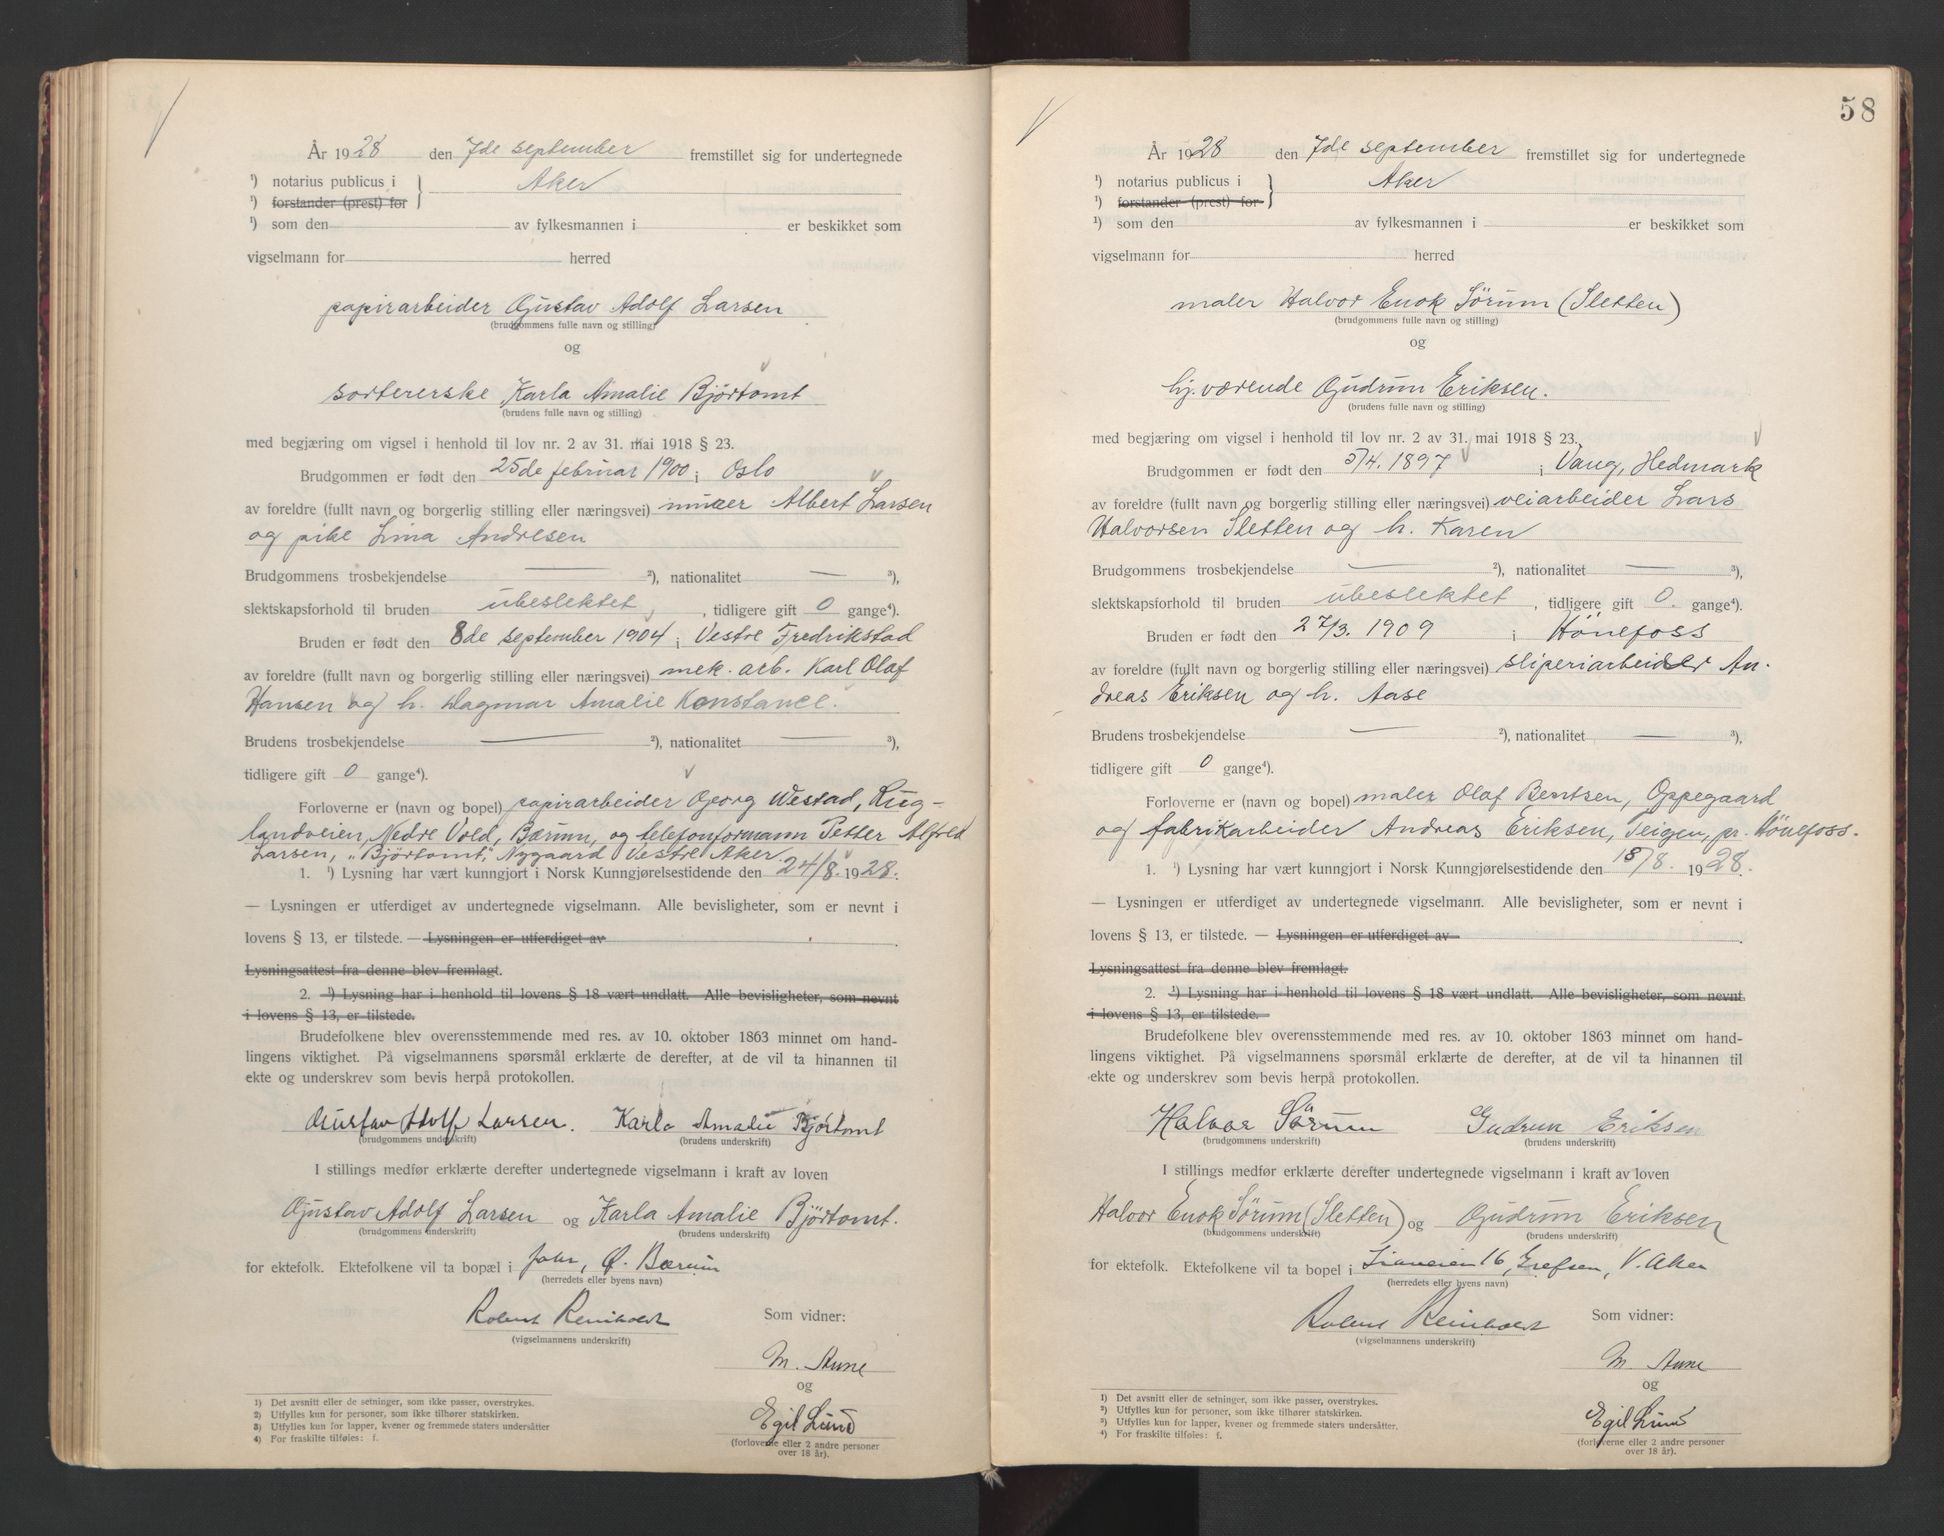 År 1928 den 7de september fremstillet sig for undertegnede
¹) notarius publicus i Aker
¹) forstander (prest) for
¹) som den av fylkesmannen i er beskikket som
vigselmann for herred
papirarbeider Gustav Adolf Larsen
(brudgommens fulle navn og stilling)
og
sortererske Karla Amalie Bjørtomt
(brudens fulle navn og stilling)
med begjæring om vigsel i henhold til lov nr. 2 av 31. mai 1918 § 23.
Brudgommen er født den 25de februar 1900 i Oslo
av foreldre (fullt navn og borgerlig stilling eller næringsvei) murer Albert Larsen
og pike Lina Andresen
Brudgommens trosbekjendelse — ²), nationalitet — ³),
slektskapsforhold til bruden ubeslektet, tidligere gift 0 gange⁴).
Bruden er født den 8de september 1904 i Vestre Fredrikstad
av foreldre (fullt navn og borgerlig stilling eller næringsvei) mek. arb. Karl Olaf
Hansen og h. Dagmar Amalie Konstance.
Brudens trosbekjendelse — ²), nationalitet — ³),
tidligere gift 0 gange⁴).
Forloverne er (navn og bopel) papirarbeider Georg Westad, Rug-
landveien, Nedre Vold, Bærum, og telefonformann Petter Alfred
Larsen, "Bjørtomt", Nygaard Vestre Aker.
1. ¹) Lysning har vært kunngjort i Norsk Kunngjørelsestidende den 24/8. 1928.
— Lysningen er utferdiget av undertegnede vigselmann. Alle bevisligheter, som er nevnt i
lovens § 13, er tilstede. — Lysningen er utferdiget av
Lysningsattest fra denne blev fremlagt.
2. ¹) Lysning har i henhold til lovens § 18 vært undlatt. Alle bevisligheter, som nevnt
i lovens § 13, er tilstede.
Brudefolkene blev overensstemmende med res. av 10. oktober 1863 minnet om hand-
lingens viktighet. På vigselmannens spørsmål erklærte de derefter, at de vil ta hinannen til
ekte og underskrev som bevis herpå protokollen.
Gustav Adolf Larsen. Karla Amalie Bjørtomt
(brudgommens underskrift) (brudens underskrift)
I stillings medfør erklærte derefter undertegnede vigselmann i kraft av loven
Gustav Adolf Larsen og Karla Amalie Bjørtomt.
(brudgommens underskrift) (brudens underskrift)
for ektefolk. Ektefolkene vil ta bopæl i Jar, Ø. Bærum
(herredets eller byens navn)
Robert Reinholdt Som vidner:
(vigselmannens underskrift)
M. Aune
og
Egil Lund
(forloverne eller 2 andre personer
over 18 år).
¹) Det avsnitt eller de setninger, som ikke passer, overstrykes.
²) Utfylles kun for personer, som ikke tilhører statskirken.
³) Utfylles kun for lapper, kvener og fremmede staters undersåtter
⁴) For fraskilte tilføies: f.
58
År 1928 den 7de september fremstillet sig for undertegnede
¹) notarius publicus i Aker
¹) forstander (prest) for
¹) som den av fylkesmannen i er beskikket som
vigselmann for herred
maler Halvor Enok Sörum (Sletten)
(brudgommens fulle navn og stilling)
og
hj. værende Gudrun Eriksen.
(brudens fulle navn og stilling)
med begjæring om vigsel i henhold til lov nr. 2 av 31. mai 1918 § 23.
Brudgommen er født den 5/4. 1897 i Vang, Hedmark
av foreldre (fullt navn og borgerlig stilling eller næringsvei) veiarbeider Lars
Halvorsen Sletten og h. Karen
Brudgommens trosbekjendelse — ²), nationalitet — ³),
slektskapsforhold til bruden ubeslektet, tidligere gift 0. gange⁴).
Bruden er født den 27/3. 1909 i Hönefoss
av foreldre (fullt navn og borgerlig stilling eller næringsvei) sliperiarbeider An-
dreas Eriksen og h. Aase
Brudens trosbekjendelse — ²), nationalitet — ³),
tidligere gift 0 gange⁴).
Forloverne er (navn og bopel) maler Olaf Bentsen, Oppegaard
og fabrikarbeider Andreas Eriksen, Teigen, pr. Hönefoss.
1. ¹) Lysning har vært kunngjort i Norsk Kunngjørelsestidende den 18/8. 1928.
— Lysningen er utferdiget av undertegnede vigselmann. Alle bevisligheter, som er nevnt i
lovens § 13, er tilstede. — Lysningen er utferdiget av
Lysningsattest fra denne blev fremlagt.
2. ¹) Lysning har i henhold til lovens § 18 vært undlatt. Alle bevisligheter, som nevnt
i lovens § 13, er tilstede.
Brudefolkene blev overensstemmende med res. av 10. oktober 1863 minnet om hand-
lingens viktighet. På vigselmannens spørsmål erklærte de derefter, at de vil ta hinannen til
ekte og underskrev som bevis herpå protokollen.
Halvor Sörum Gudrun Eriksen
(brudgommens underskrift) (brudens underskrift)
I stillings medfør erklærte derefter undertegnede vigselmann i kraft av loven
Halvor Enok Sörum (Sletten) og Gudrun Eriksen
(brudgommens underskrift) (brudens underskrift)
for ektefolk. Ektefolkene vil ta bopel i Lianveien 16, Grefsen, V. Aker
(herredets eller byens navn)
Robert Reinholdt Som vidner:
(vigselmannens underskrift)
M. Aune
og
Egil Lund
(forloverne eller 2 andre personer
over 18 år).
¹) Det avsnitt eller de setninger, som ikke passer, overstrykes.
²) Utfylles kun for personer, som ikke tilhører statskirken.
³) Utfylles kun for lapper, kvener og fremmede staters undersåtter.
⁴) For fraskilte tilføies: f.